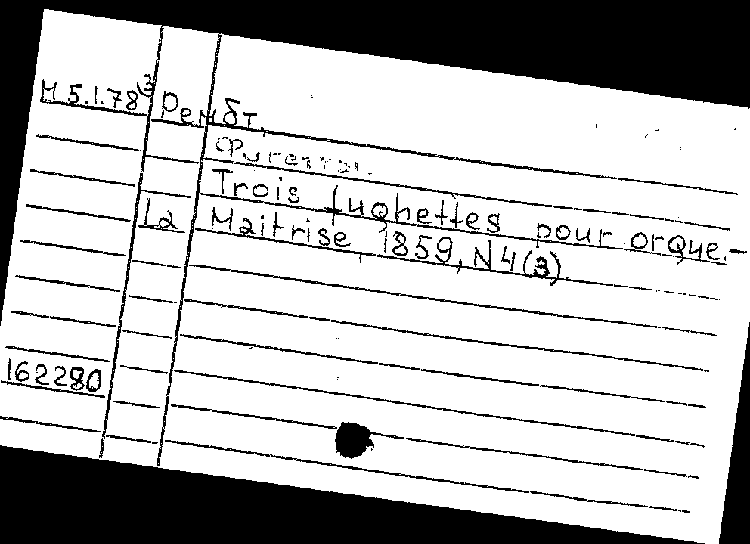 М 5.1.78(3 Рембт,
Фугетты.
Trois fughettes pour orque.-
La Maitrise, 1859, N4(3).
162280